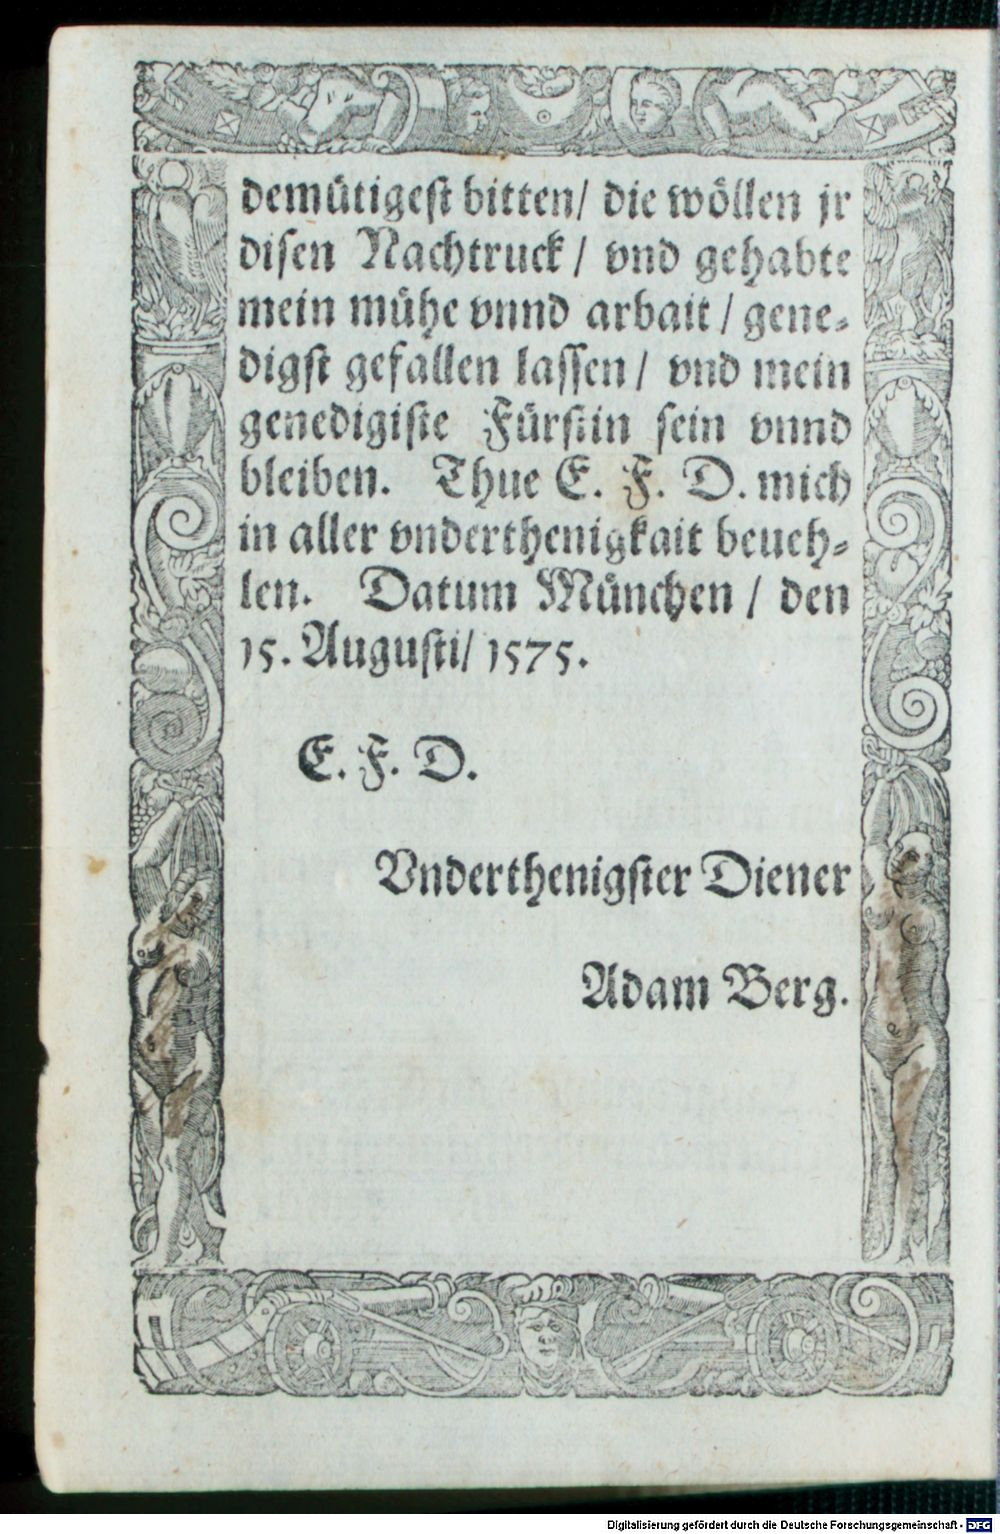 demütigest bitten/ die wöllen jr
disen Nachtruck/ vnd gehabte
mein mühe vnnd arbait/ gene-
digst gefallen lassen/ vnd mein
genedigiste Fürstin sein vnnd
bleiben. Thue E. F. D. mich
in aller vnderthenigkait beueh-
len. Datum München/ den
15. Augusti/ 1575.
E. F. D.
Vnderthenigster Diener
Adam Berg.
Digitalisierung gefördert durch die Deutsche Forschungsgemeinschaft - DFG